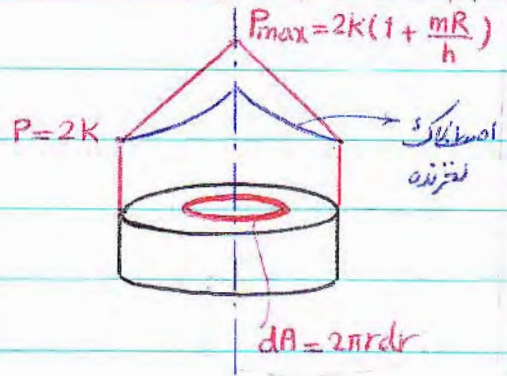 Pmax = 2K(1 + mR/h)
P = 2K
اصطکاک
لغزنده
dA = 2πrdr